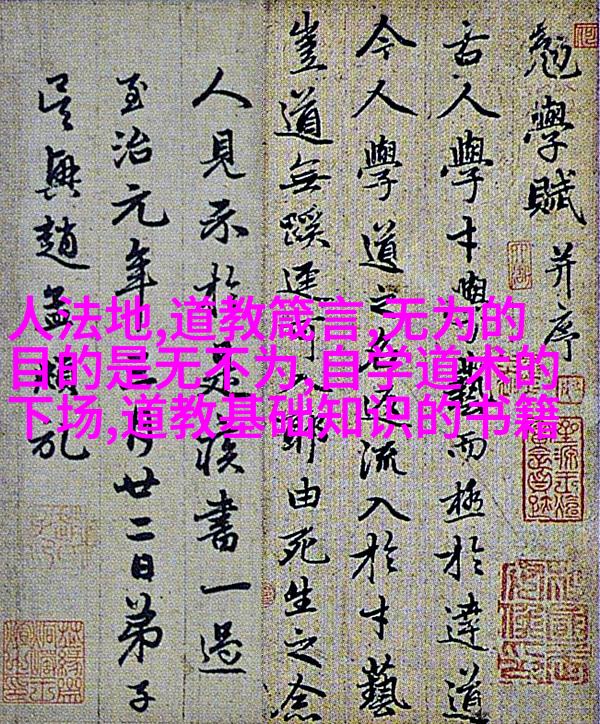 人法地,道教箴言,无为的
目的是无不为,自学道术的
下场,道教基础知识的书籍
勉學賦 并序
古人學才與藝而極於達道
今人學道之流入於才藝
豈道無蹊逕耶由死生之念
人見示於是疾書一過
至治元年三月廿二日弟子
吳興趙孟頫